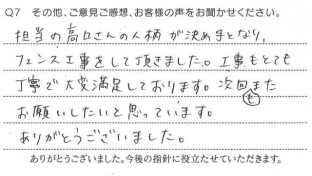 Q7 その他、ご意見ご感想、お客様の声をお聞かせください。
担当の高口さんの人柄が決め手となり、
フェンス工事をして頂きました。工事もとても
丁寧で大変満足しております。次回もまた
お願いしたいと思っています。
ありがとうございました。
ありがとうございました。今後の指針に役立たせていただきます。